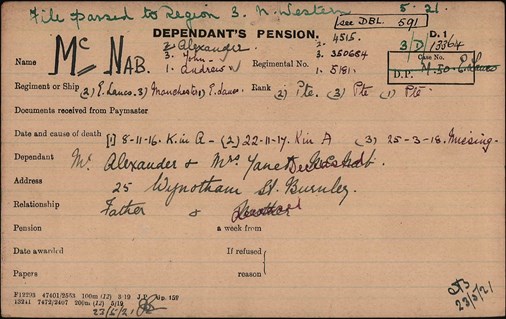 File passed to Region 3. N. Western 5.21.
see DBL. 591
DEPENDANT'S PENSION.
D. 1
3/D/13364
Case No.
D.P. M.50.
Name Mc NAB.
2. Alexander.
3. John
1. Andrew
Regimental No.
2. 4515.
3. 350684
1. 5181.
Regiment or Ship (2) E. Lancs. 3) Manchester 1) E. Lancs.
Rank (2) Pte. (3) Pte (1) Pte.
Documents received from Paymaster
Date and cause of death [1] 8-11-16. K in A - (2) 22-11-17. K in A (3) 25-3-18. Missing.
Dependant Mr. Alexander & Mrs Janet Deceased
Address 25 Wynotham St. Burnley.
Relationship Father &
Pension a week from
Date awarded
If refused
Papers
reason
F12293 47401/2553 100m (12) 3/19 J.P. Gp. 152
13241 7472/2407 200m (12) 5/19
23/5/21
23/5/21